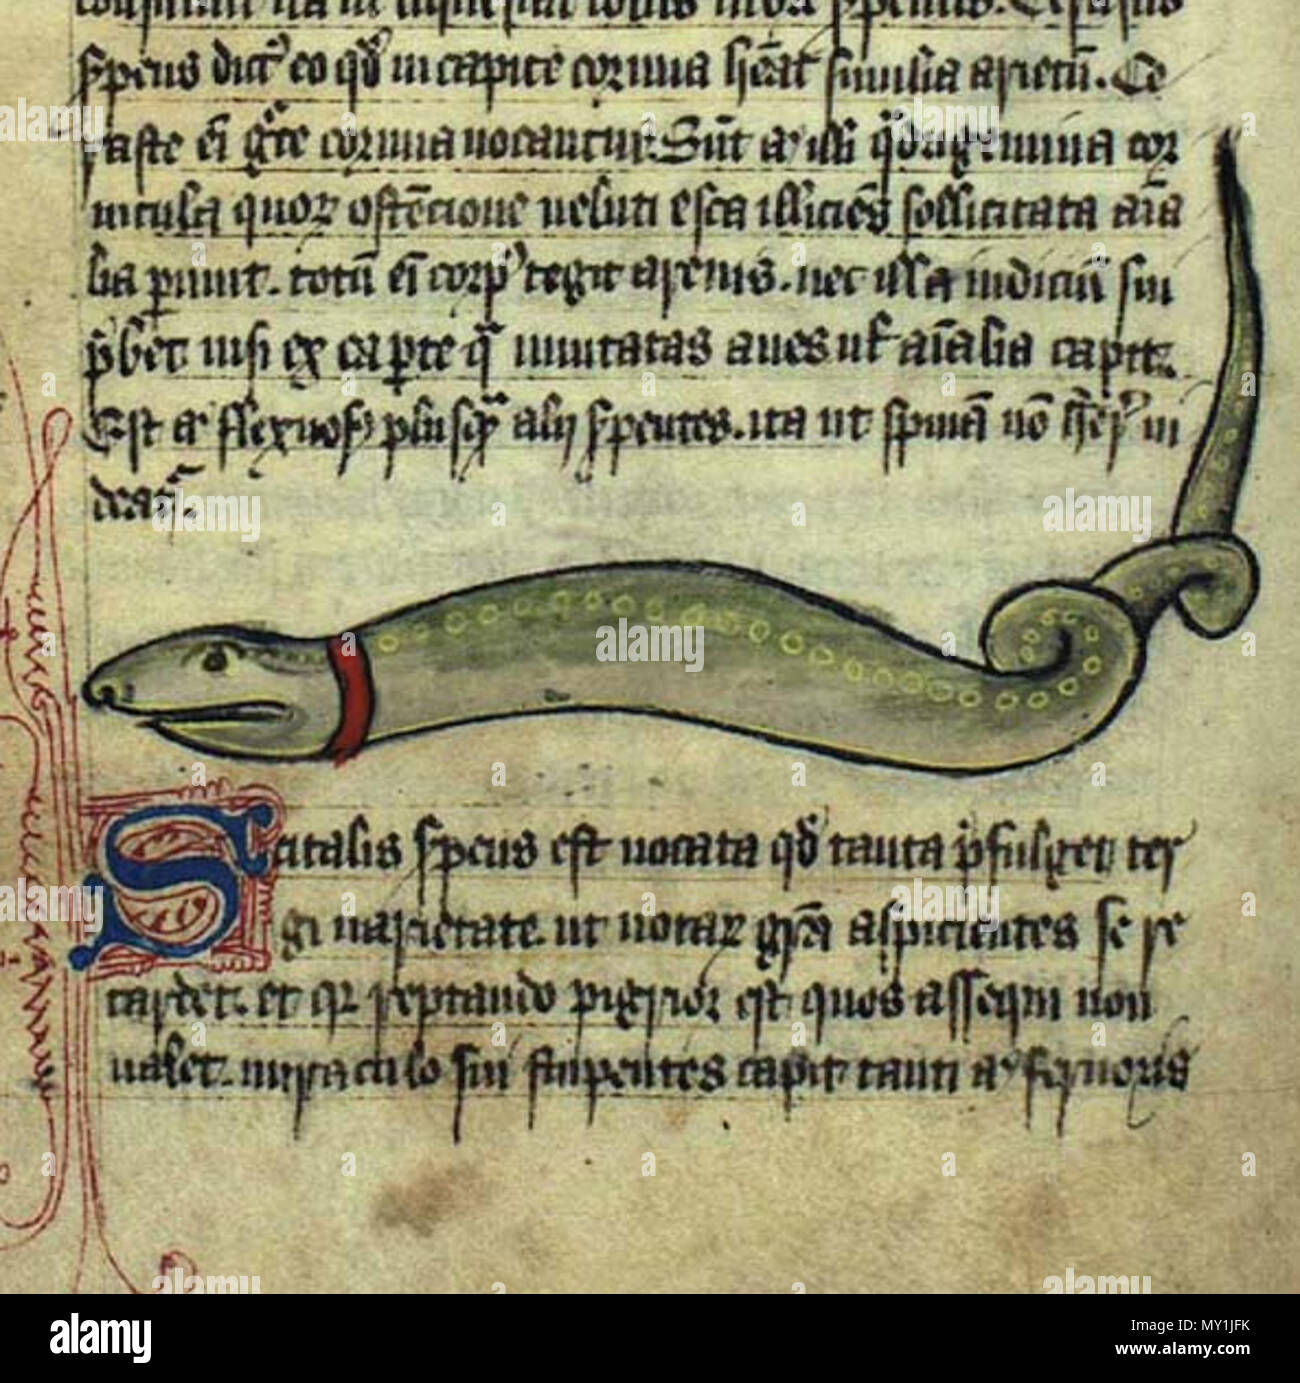 serpens dict' eo qd' in capite cornua h'eat similia arietū. Ce
raste ēi g'ce cornua uocantur. Sūt a' illi q'drigemina cor
nicula quor' ostēcione ueluti esca illiciēs sollicitata aīa
lia p'imit. totū ēi corp' tegit arenis. nec ulla indiciū sui
p'bet nisi ex ea parte q' inuitatas aues ul' aīalia capit.
Est a' flexuos' plusq' alij s'pentes. ita ut spinā nō h'e'
deat'.
Scitalis s'pens est uocata qd' tanta p'fulget ter
gi uarietate. ut notar' gr'a aspicientes se re
tardet. et q' reptando pigrior est quos assequi non
ualet. miraculo sui stupentes capit tanti a' feruoris
alamy
Image ID: MY1JFK
www.alamy.com